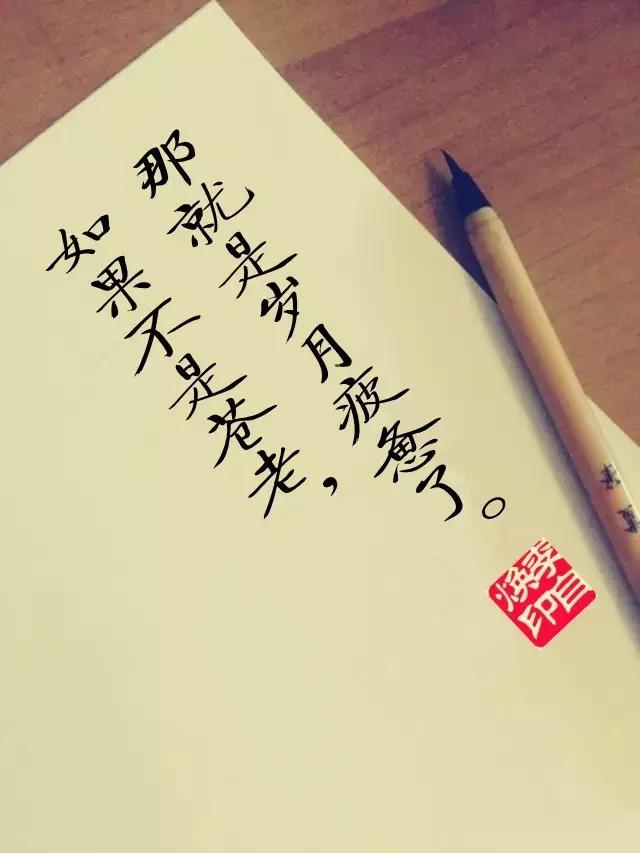 如果不是苍老，
那就是岁月疲惫了。
李自
焕印